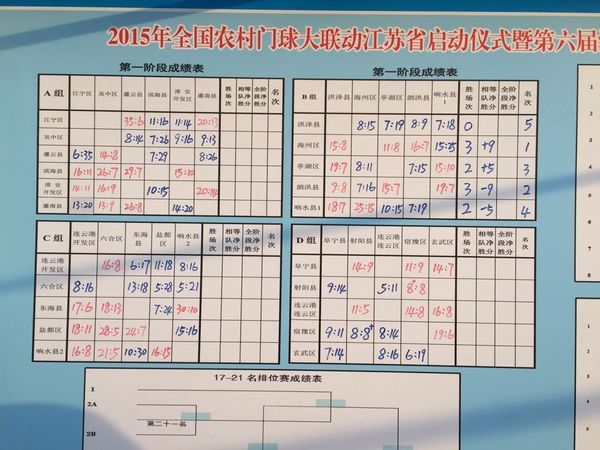 2015年全国农村门球大联动江苏省启动仪式暨第六届
第一阶段成绩表
A 组 江宁区 吴中区 灌云县 滨海县 淮安开发区 灌南县 胜场次 相等队净胜分 全阶段净胜分 名次
江宁区 35:6 11:16 11:14 20:13
吴中区 8:14 7:26 9:16 9:13
灌云县 6:35 14:8 7:29 8:26
滨海县 16:11 26:7 29:7 15:10
淮安开发区 14:11 16:9 10:15 20:14
灌南县 13:20 13:9 26:8 14:20
第一阶段成绩表
B 组 洪泽县 海州区 亭湖区 泗洪县 响水县1 胜场次 相等队净胜分 全阶段净胜分 名次
洪泽县 8:15 7:19 8:9 7:18 0 5
海州区 15:8 11:8 16:7 15:25 3 +9 1
亭湖区 19:7 8:11 7:15 15:10 2 +5 3
泗洪县 9:8 7:16 15:7 19:7 3 -9 2
响水县1 18:7 25:15 10:15 7:19 2 -5 4
C 组 连云港开发区 六合区 东海县 盐都区 响水县2 胜场次 相等队净胜分 全阶段净胜分 名次
连云港开发区 16:8 6:17 11:18 8:16
六合区 8:16 13:18 5:28 5:21
东海县 17:6 18:13 7:24 30:10
盐都区 18:11 28:5 24:7 15:16
响水县2 16:8 21:5 10:30 16:15
D 组 阜宁县 射阳县 连云港连云区 宿豫区 玄武区 胜场次 相等队净胜分 全阶段净胜分 名次
阜宁县 14:9 11:9 14:7
射阳县 9:14 5:11 8+:8
连云港连云区 11:5 14:8 16:8
宿豫区 9:11 8:8+ 8:14 19:6
玄武区 7:14 8:16 6:19
17-21 名排位赛成绩表
1
2A
第二十一名
2B